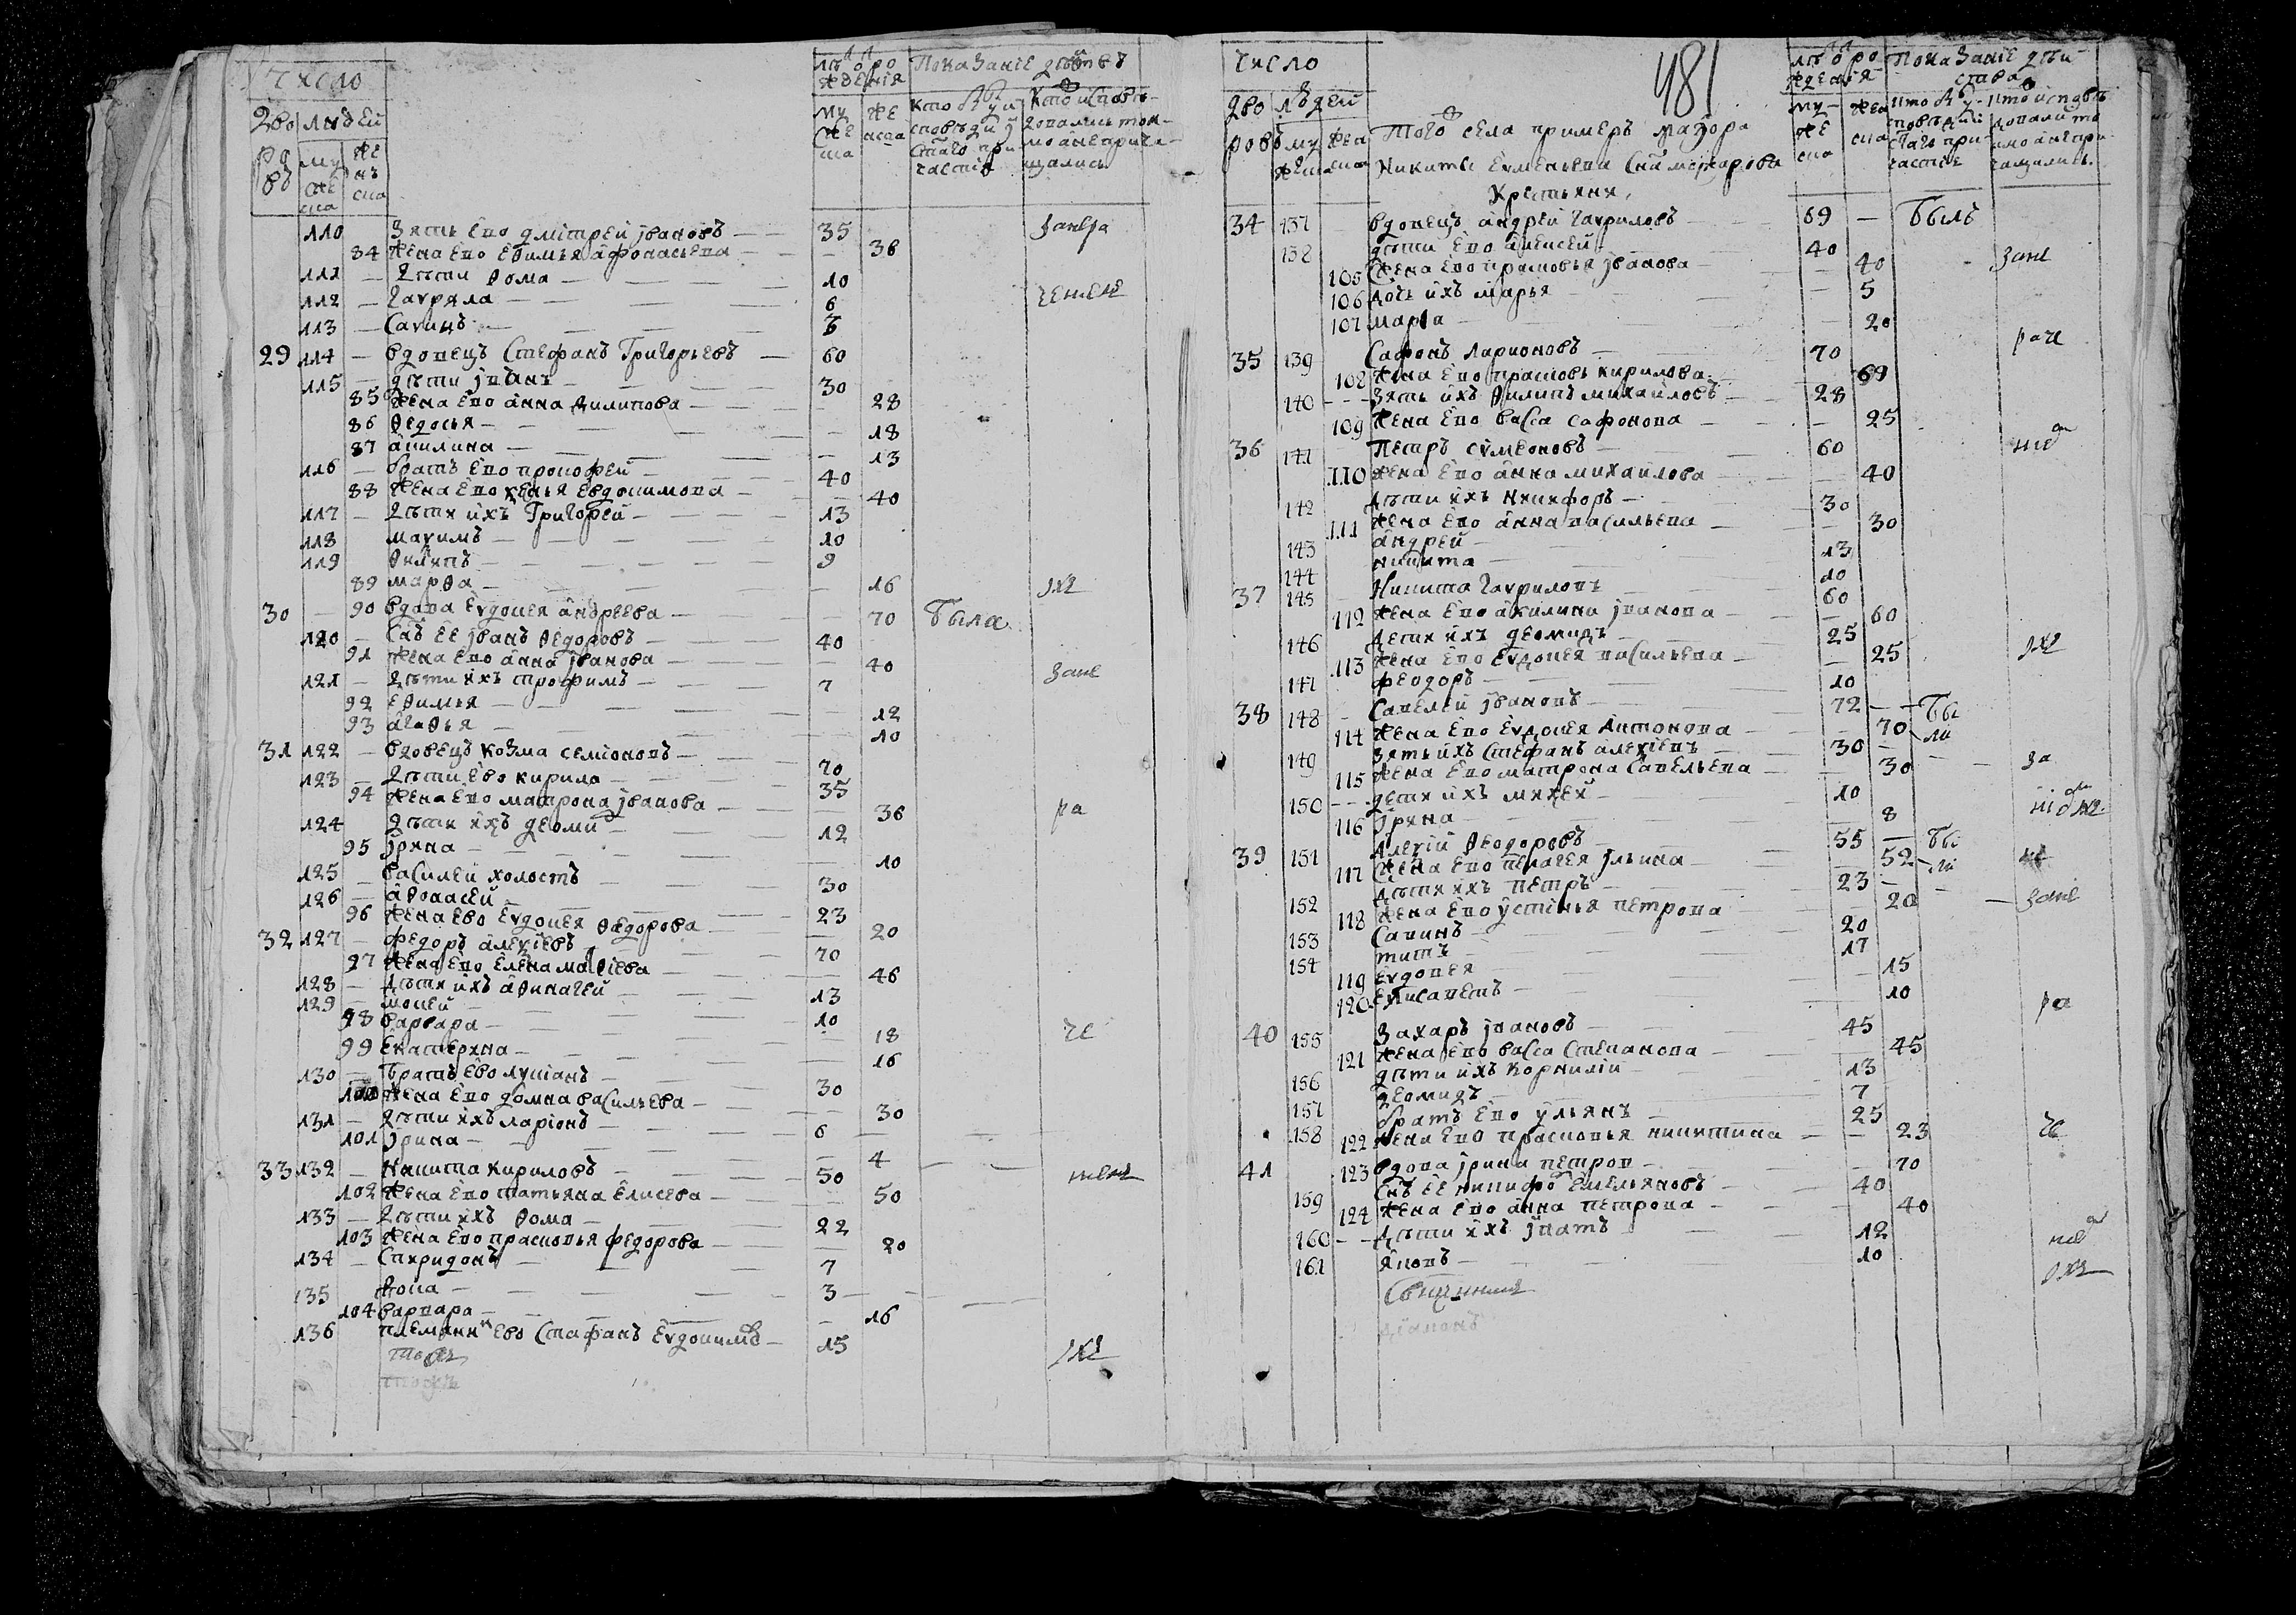 число
дворовъ людей
мужеска женска
лѣто рождения
мужеска женска
показание дѣйствъ
110 Зять его дмитрей іванов 35
84 жена его ефимья афонасьева 36
111 дѣти Ѳома 10
112 гаврила 6
113 Савинъ 3
29 114 вдовецъ Стефанъ Григорьевъ 60
115 дѣти іванъ 30
85 жена его анна Филипова 28
86 Ѳедосья 18
87 акилина 13
116 братъ его прокофей 40
88 жена его ксенья евдокимова 40
117 дѣти ихъ Григорей 13
118 максимъ 10
119 Ѳилипъ 9
89 марѲа 16
30 90 вдова Евдокея андреева 70 была
120 Снъ ее іванъ Ѳедоровъ 40
91 жена его анна іванова 40
121 дѣти ихъ трофимъ 7
92 еѲимья 12
93 агаѲья 10
31 122 вдовецъ козма семионовъ 70
123 дѣти его кирило 35
94 жена его матрона іванова 36
124 дѣти ихъ деоми 12
95 ірина 10
125 василей холостъ 30
126 аѲонасей 23
96 жена ево Евдокея Ѳедорова 20
32 127 федоръ алексиевъ 70
97 жена его Елена маѲиева 46
128 дѣти ихъ аѲинагей 13
129 мокей 10
98 варвара 18
99 Екатерина 16
130 братъ ево лукианъ 30
100 жена его домна васильева 30
131 дѣти ихъ ларионъ 6
101 ірина 4
33 132 Никита кириловъ 50
102 жена его татьяна Елисева 50
133 дѣти ихъ Ѳома 22
103 жена его прасковья федорова 20
134 Спиридонъ 7
135 Ѳока 3
104 варвара 16
136 племянни ево Стафанъ Евдокимов 15
481
число
дворовъ людей
мужеска женска
Того села примеръ маэора
Никиты Еуменьева Снимщикарова
Крестьяня
лѣто рождения
показание дѣйства
34 137 вдовецъ андрей гавриловъ 69 былъ
138 дѣти его алексей 40
105 жена его прасковья іванова 40
106 дочь ихъ марья 5
107 марѲа 20
35 139 Сафонъ ларионовъ 70
108 жена его прасковь кирилова 69
140 Зять ихъ Ѳилипъ михайловъ 28
109 жена его васса сафонова 25
36 141 Петръ сумеоновъ 60
110 жена его анна михайлова 40
142 дѣти ихъ Никифоръ 30
111 жена его анна васильева 30
143 андрей 13
144 никита 10
37 145 Никита гавриловъ 60
112 жена его акилина іванова 60
146 дети ихъ деомидъ 25
113 жена его евдокея васильева 25
147 феодоръ 10
38 148 Савелей івановъ 72 бы
114 жена его евдокея Антонова 70 ли
149 Зять ихъ Стефанъ алексиевъ 30
115 жена его матрона Савельева 30
150 дети ихъ михей 10
116 ірина 8
39 151 Алексій Ѳеодоровъ 55 бы
117 жена его пелагея ільина 52 ли
152 дѣти ихъ петръ 23
118 жена его устинья петрова 20
153 Савинъ 20
154 титъ 17
119 Евдокея 15
120 Елисаветъ 10
40 155 Захаръ івановъ 45
121 жена его васса Степанова 45
156 дѣти ихъ корнилии 13
157 деомидъ 7
158 братъ его ульянъ 25
122 жена его прасковья никитина 23
41 123 вдова ірина петров 70
159 Снъ ее никифо Емельяновъ 40
124 жена его анна петрова 40
160 дѣти ихъ ігнатъ 12
161 яковъ 10